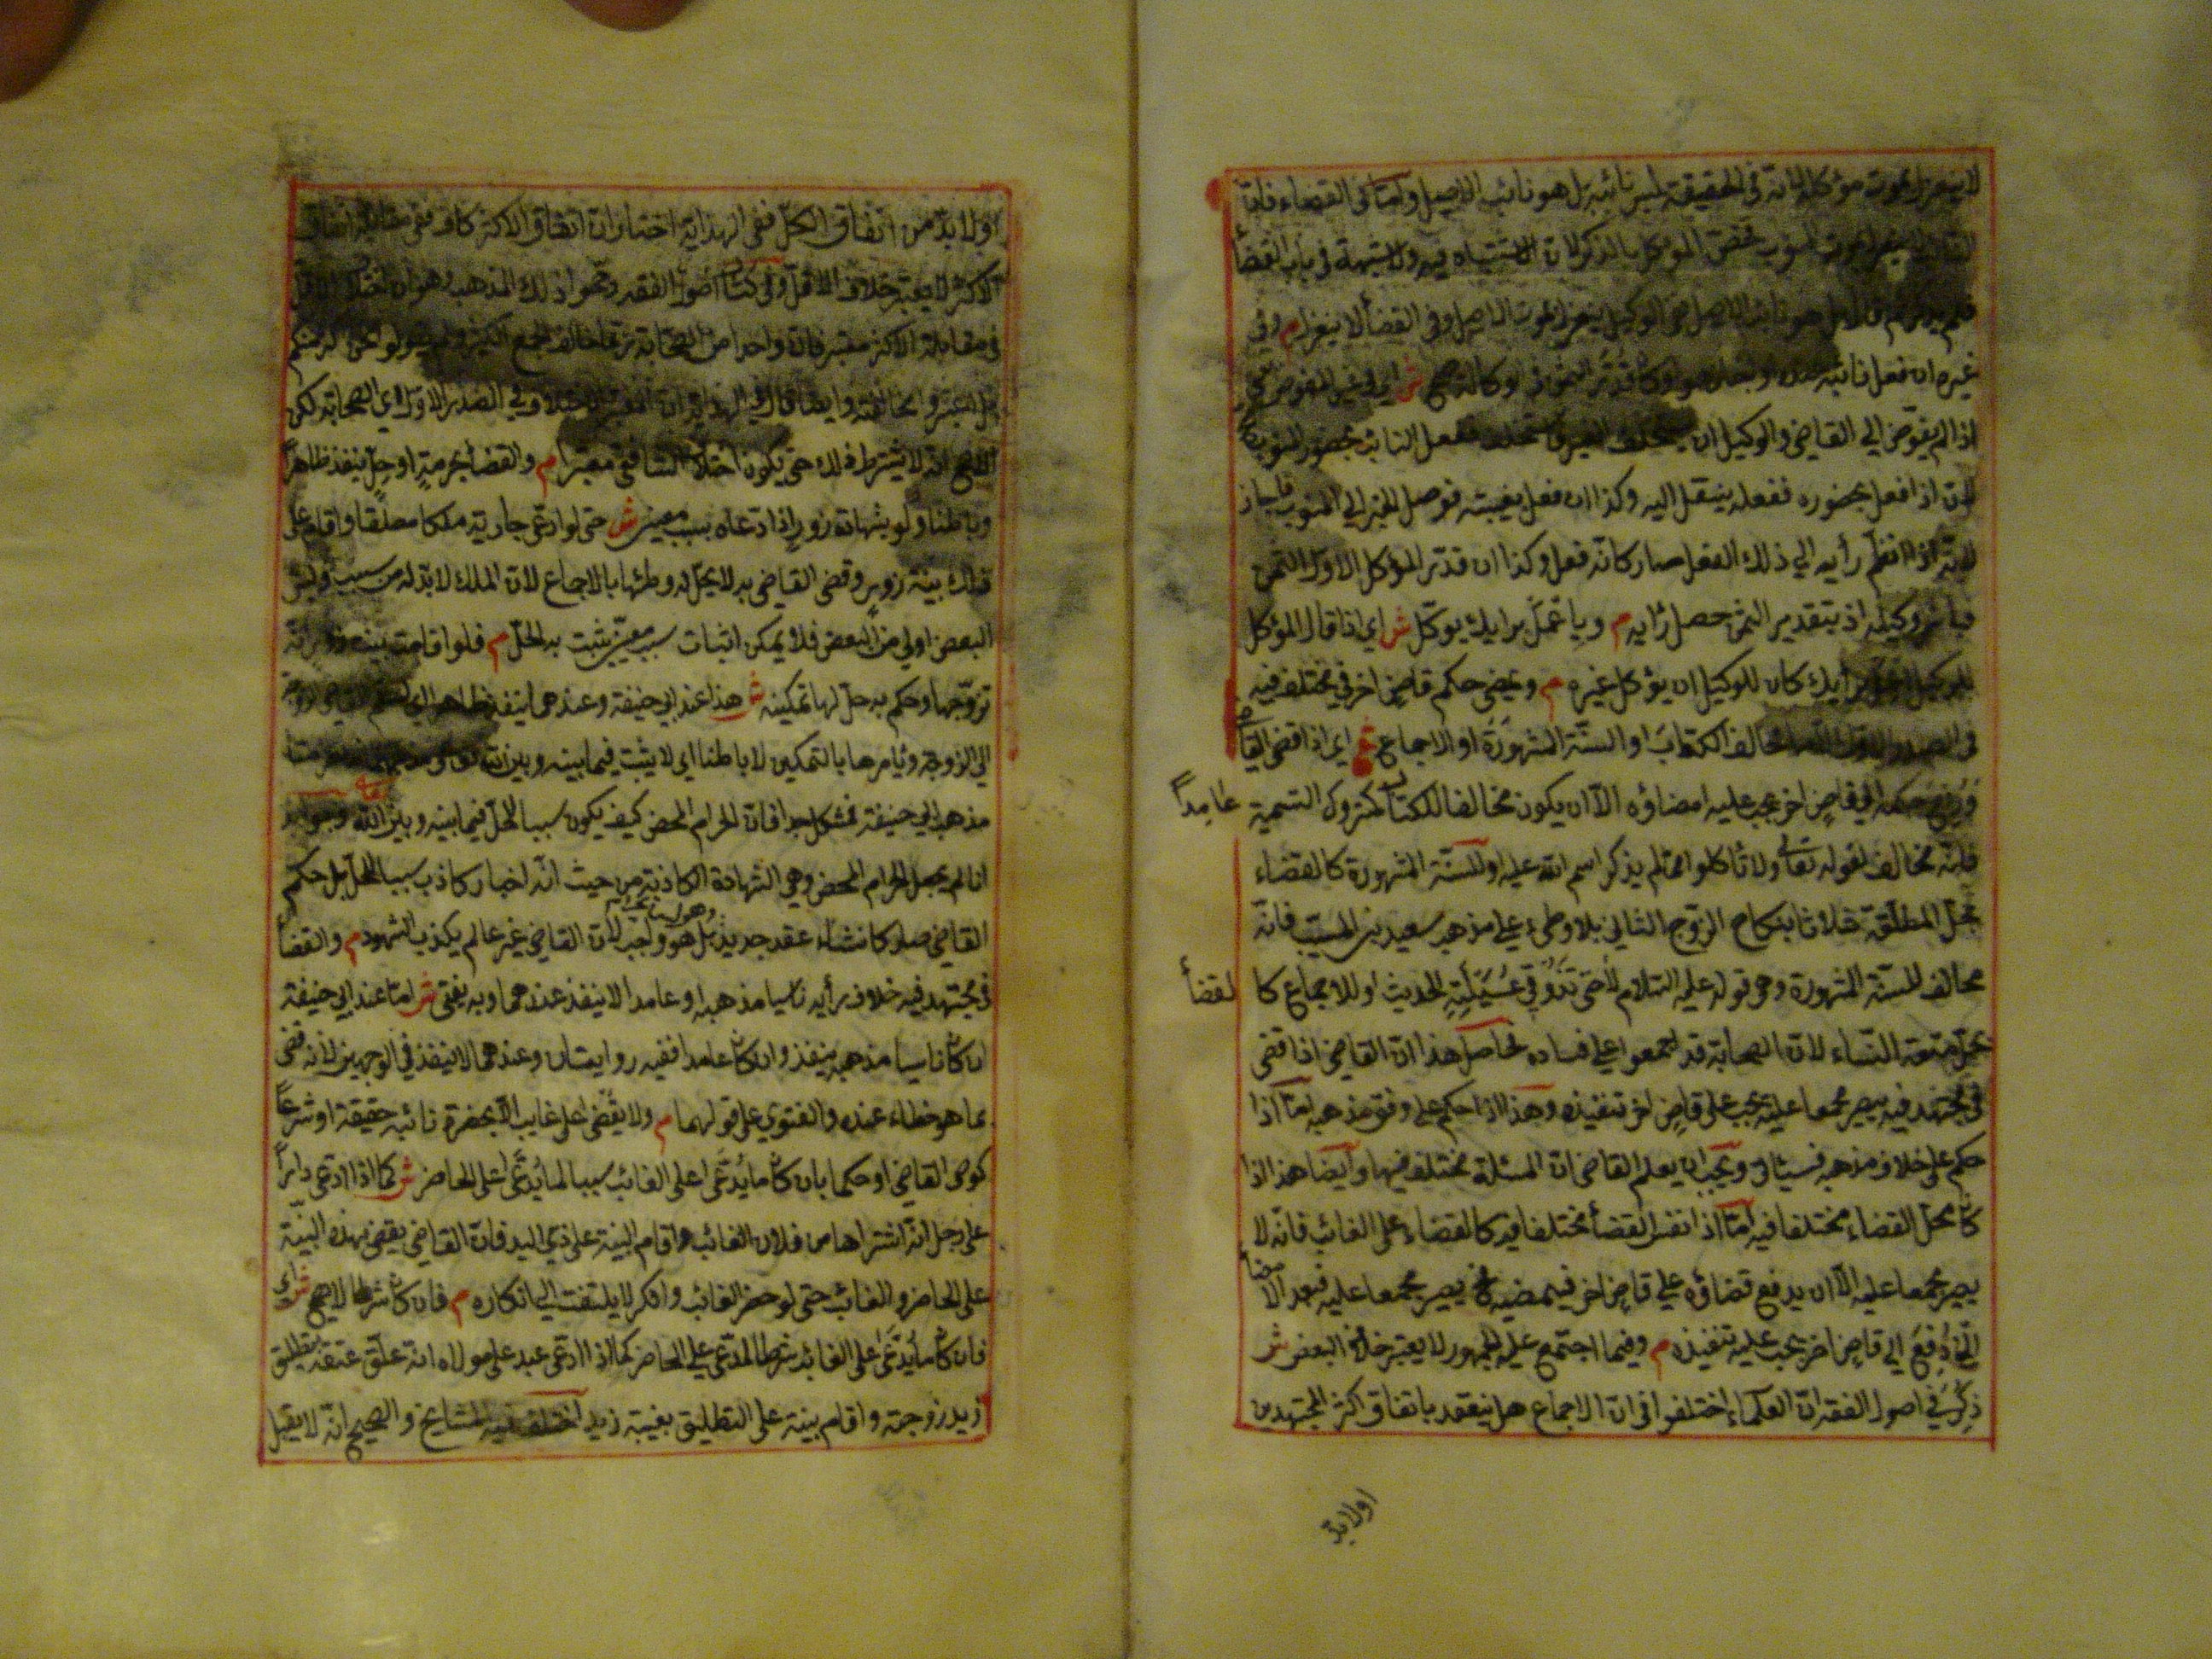 لا ينعزل بموت موكله لانه في الحقيقة ليس نائبه بل هو نائب الاصيل ولمّا كان القضاء فامّا
ينعزل بموت المنوب فخصّ الموكل بالذكر لان الاشتباه فيه ولا شبهة في باب القضأ
بل هو نائب الاصيل ففي الوكيل ينعزل بموت الاصيل وفي القضأ لا ينعزل م وفي
غيره ان فعل نائبه عنده او اجازه هو او كان قدّر الثمن في الوكالة صحّ ش اي في غير المفوّض
اذا لم يفوّض الي القاضي والوكيل ان يستخلف الغير فاستخلف ففعل النائب بحضور المنوب
لانه اذا فعل بحضوره ففعله ينتقل اليه وكذا ان فعل بغيبته فوصل الخبر الي المنوب فاجاز
لانه اذا انضمّ رأيه الي ذلك الفعل صار كانّه فعل وكذا ان قدّر الموكل الاوّل الثمن
فباشر وكيله اذ بتقدير الثمن حصل رأيه م وباعمل برايك يوكّل ش اي اذا قال الموكل
للوكيل اعمل برأيك كان للوكيل ان يوكل غيره م ويمضي حكم قاض اخر في مختلف فيه
في الصدر الاول الا ما خالف الكتاب او السنّة المشهورة او الاجماع ش اي اذا قضي القاضي
ورفع حكمه الي قاض اخر يجب عليه امضاؤه الّا ان يكون مخالفا للكتاب كمتروك التسمية عامداً
فانّه مخالف لقوله تعالى ولا تأكلوا ممّا لم يذكر اسم الله عليه او للسنّة المشهورة كالقضاء
بحلّ المطلّقة ثلاثا بنكاح الزوج الثاني بلا وطىء على مذهب سعيد بن المسيّب فانّه
مخالف للسنّة المشهورة وهو قوله عليه السّلام لا حتى تذوقي عسيلته الحديث او للاجماع كالقضأ
بحلّ متعة النساء لانّ الصحابة قد اجمعوا على فساده لحاصل هذا انّ القاضي اذا قضى
في مجتهد فيه يصير مجمعا عليه يجب على قاض اخر تنفيذه وهذا اذا حكم على وفق مذهبه امّا اذا
حكم على خلاف مذهبه فسيأتي ويجب ان يعلم القاضي انّ المسئلة مختلف فيها وايضا هذا اذا
كان محلّ القضاء مختلفا فيه امّا اذا نفس القضأ مختلفا فيه كالقضاء على الغائب فانّه لا
يصير مجمعا عليه الّا ان يدفع قضاؤه على قاض اخر فيمضيه فح يصير مجمعا عليه فبعد الامضأ
اذا رفع الي قاض اخر يجب عليه تنفيذه م وفيما اجتمع عليه الجمهور لا يعتبر خلاف البعض ش
ذكر في اصول الفقه انّ العلماء اختلفوا في انّ الاجماع هل ينعقد باتفاق اكثر المجتهدين
اولابدّ
او لا بدّ من اتفاق الكلّ ففي الهداية اختار ان اتفاق الاكثر كاف ففي مقابلة اتفاق
الاكثر لا يعتبر خلاف الاقلّ وفي كتب اصول الفقه رجّحوا ذلك المذهب وهو ان اختلاف الاقل
في مقابلة الاكثر معتبر فان واحدا من الصحابة ربّما خالف الجمع الكثير ولم يقولوا نحن اكثر منكم
بل اعتبروا مخالفته وايضا قال في الهداية ان المعتبر الاختلاف في الصدر الاوّل اي الصحابة لكن
الاصح انه لا يشترط ذلك حتى يكون اختلاف الشافعي معتبرا م والقضأ بحرمة او حلّ ينفذ ظاهراً
وباطنا ولو بشهادة زور اذا ادّعاه بسبب معين ش حتى لو ادعى جارية ملكا مطلقا واقام على
ذلك بينة زور وقضى القاضي به لا يحلّ له وطئها بالاجماع لانّ الملك لا بدّ له من سبب وليس
البعض اولى من البعض فلا يمكن اثبات سبب معيّن يثبت به الحلّ م فلو اقامت بينة زور انّه
تزوّجها وحكم به حلّ لها تمكينه ش هذا عند ابي حنيفة وعندهما ينفذ ظاهرا اي
الي الزوجة ويأمرها بالتمكين لا باطنا اي لا يثبت فيما بينه وبين الله تعالى
مذهب ابي حنيفة فمشكل جدا فانّ الحرام المحض كيف يكون سببا للحلّ فيما بينه وبين الله وجوابه
انا لم نجعل الحرام المحض وهي الشهادة الكاذبة من حيث انّه اخبار كاذب سببا للحلّ بل حكم
القاضي صار كانشاء عقد جديد بل هو واجب لانّ القاضي غير عالم بكذب الشهود م والقضأ
في مجتهد فيه خلاف رأيه ناسيا مذهبه او عامدا لا ينفذ عندهما وبه يفتى ش امّا عند ابي حنيفة
ان كان ناسيا مذهبه ينفذ وان كان عامدا ففيه روايتان وعندهما لا ينفذ في الوجهين لانه قضى
بما هو خطاء عنده والفتوي على قولهما م ولا يقضى على غايب الّا بحضرة نائبه حقيقة او شرعاً
كوصي القاضي او حكما بان كان ما يدّعى على الغائب سببا لما يدّعى على الحاضر ش كما اذا ادّعى داراً
على رجل انّه اشتراها من فلان الغائب واقام البينة على ذي اليد فانّ القاضي يقضي بهذه البيّنة
على الحاضر والغائب حتى لو حضر الغائب وانكر لا يلتفت الي انكاره م فان كان شرطا لا يصح ش اى
فان كان ما يدّعى على الغائب شرطا لما يدّعى على الحاضر كما اذا ادّعى عبد على مولاه انّه علّق عتقه بتطليق
زيد زوجته واقام بينة على التطليق بغيبة زيد اختلف فيه المشايخ والصحيح انّه لا يقبل